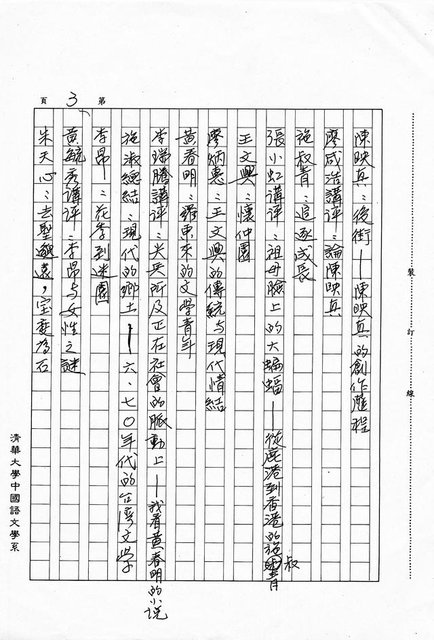 第3頁
裝訂線
陳映真：後街——陳映真的創作歷程
廖咸浩講評：論陳映真
施叔青：追逐成長
張小虹講評：祖母臉上的大蝙蝠——從鹿港到香港的施叔青
王文興：懷仲園
廖炳惠：王文興的傳統与現代情結
黃春明：羅東來的文學青年
李瑞騰講評：尖尖所及正在社會的脈動上——我看黃春明的小說
施淑總結：現代的鄉土——六、七〇年代的台灣文學
李昂：花季到迷園
黃毓秀講評：李昂与女性之謎
朱天心：去聖邈遠，宝變為石
清華大學中國語文學系